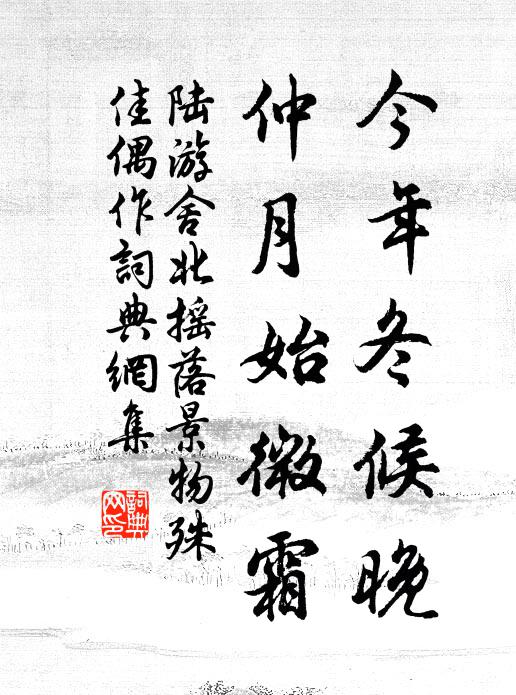 今年冬候晚
仲月始微霜
陆游舍北摇落景物殊
佳偶作詞典網集
詞典网印